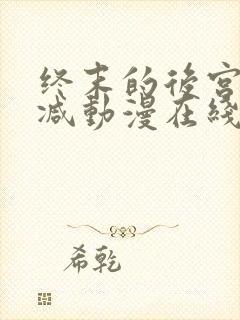 终末的後宫
减動漫在綫
希乾